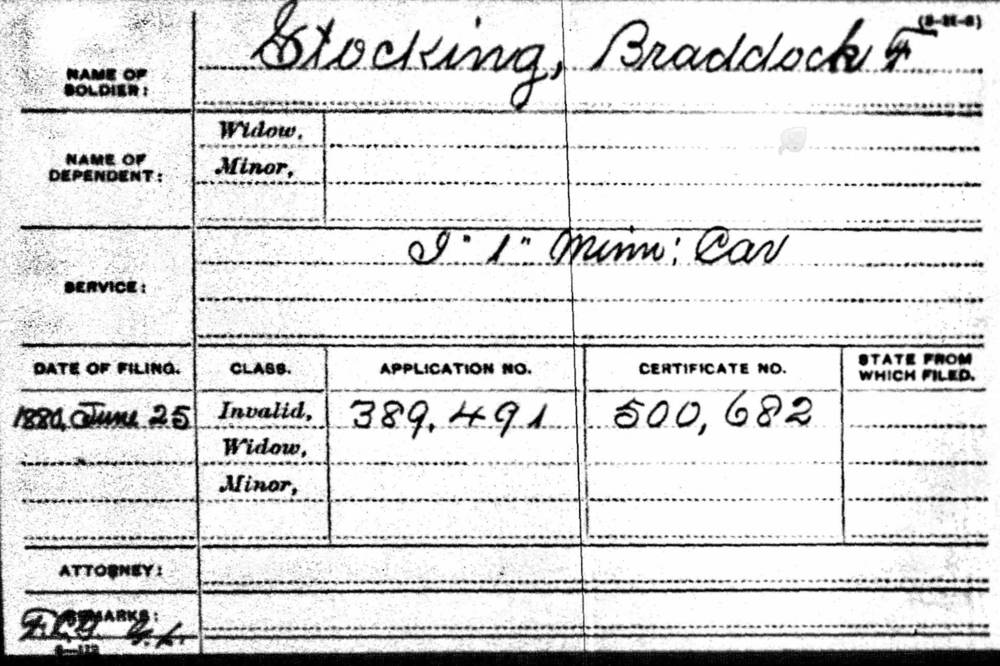 Stocking, Braddock F
NAME OF SOLDIER:
NAME OF DEPENDENT:
Widow,
Minor,
SERVICE:
I" 1" Minn: Cav
DATE OF FILING.
CLASS.
APPLICATION NO.
CERTIFICATE NO.
STATE FROM WHICH FILED.
1880, June 25
Invalid,
389,491
500,682
Widow,
Minor,
ATTORNEY:
REMARKS: